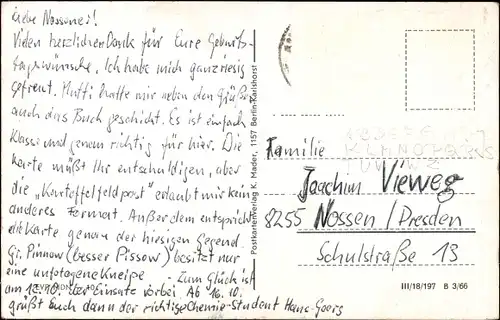 Liebe Nossener!
Vielen herzlichen Dank für Eure Geburts-
tagswünsche. Ich habe mich ganz riesig
gefreut. Mutti hatte mir neben den Grüßen
auch das Buch geschickt. Es ist einfach
Klasse und genau richtig für hier. Die
Karte müßt Ihr entschuldigen, aber
die „Kartoffelfeldpost" erlaubt mir kein
anderes Format. Außerdem entspricht
die Karte genau der hiesigen Gegend.
Gr. Pinnow (besser Pissow) besitzt nur
eine Kneipe - Zum Glück ist
am 12.10. der Einsatz vorbei. Ab 16.10.
grüßt Euch dann der richtige Chemie-Student Hans-Georg
Postkartenverlag K. Mader, 1157 Berlin-Karlshorst
Familie
Joachim Vieweg
8255 Nossen/Dresden
Schulstraße 13
III/18/197 B 3/66